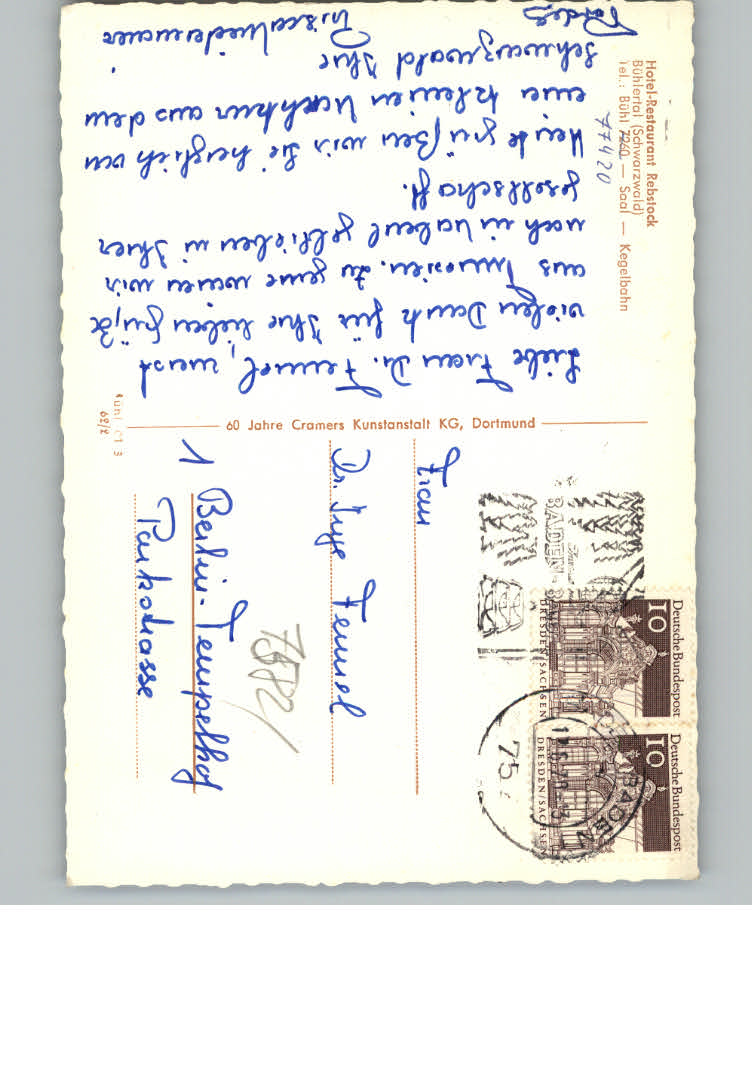 Hotel-Restaurant Rebstock
Bühlertal (Schwarzwald)
Tel.: Bühl 7260 — Saal — Kegelbahn
77420
Liebe Frau Dr. Femmel, zuerst
vielen Dank für Ihre lieben Grüße
aus Tunesien. Zu gerne wären wir
noch in Nabeul geblieben in Ihrer
Gesellschaft.
Heute grüßen wir Sie herzlich von
einer kleinen Wanderung aus dem
Schwarzwald Ihre
60 Jahre Cramers Kunstanstalt KG, Dortmund
62/2
Deutsche Bundespost
10
DRESDEN/SACHSEN
Deutsche Bundespost
10
DRESDEN/SACHSEN
BADEN-
BADEN
75
Frau
Dr. Inge Femmel
1 Berlin-Tempelhof
Parkstrasse